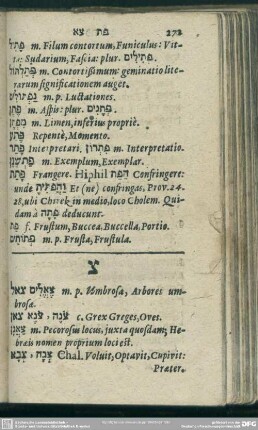 פת צא 273
פְּתִיל m. Filum contortum, Funiculus: Vit-
ta: Sudarium, Fascia: plur. פְּתִילִים
פְּתַלְתּוֹל m. Contortissimum: geminatio lite-
rarum significationem auget.
נַפְתּוּלִים m. p. Luctationes.
פֶּתֶן m. Aspis: plur. פְּתָנִים
מִפְתָּן m. Limen, inferius propriè.
פֶּתַע Repentè, Momento.
פָּתַר Interpretari, פִּתְרוֹן m. Interpretatio.
פַּתְשֶׁגֶן m. Exemplum, Exemplar.
פָּתַת Frangere. Hiphil הֵפֵת Confringere:
unde Et (ne) confringas, Prov. 24.
28, ubi Chirek in medio, loco Cholem. Qui-
dam à פָּתָה deducunt.
פַּת f. Frustum, Buccea, Buccella, Portio.
פְּתוֹתִים m. p. Frusta, Frustula.
צ
צֶאֱלִים צאל m. p. Vmbrosa, Arbores um-
brosæ.
צאן צֹאן c. Grex Greges, Oves.
m. Pecorosus locus, juxta quosdam; He-
bræis nomen proprium loci est.
צְבָה, צְבָא Chal. Voluit, Optavit, Cupivit:
Præter.